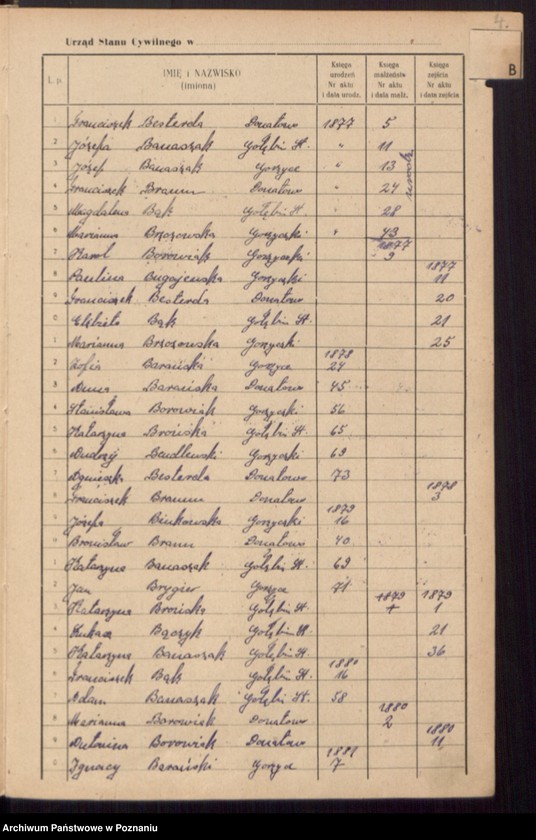 4.
Urząd Stanu Cywilnego w
B
L. p. IMIĘ i NAZWISKO (imiona) Księga urodzeń Nr aktu i data urodz. Księga małżeństw Nr aktu i data małż. Księga zejścia Nr aktu i data zejścia
1 Franciszek Besterda Donatowo 1877 5
2 Józefa Banaszak Gołębin St. " 11
3 Józef Banaszak Gorzyce " 13
4 Franciszek Braun Donatowo " 24
5 Magdalena Bąk Gołębin St. 28
6 Marianna Brzozowska Gorzyczki " 43
7 Karol Borowiak Gorzyczki 1877 9
8 Paulina Bugajewska Gorzyczki 1877 11
9 Franciszek Besterda Donatowo 20
0 Elżbieta Bąk Gołębin St. 21
1 Marianna Brzozowska Gorzyczki 25
2 Zofia Barański Gorzyce 1878 24
3 Anna Barańska Donatowo 45
4 Stanisława Borowiak Gorzyczki 56
5 Katarzyna Brońska Gołębin St. 65
6 Andrzej Bendlewski Gorzyczki 69
7 Agnieszka Besterda Donatowo 73
8 Franciszek Braun Donatowo 1878 3
9 Józefa Binkowska Gorzyczki 1879 16
0 Bronisław Braun Donatowo 40
1 Katarzyna Banaszak Gołębin St. 69
2 Jan Brygier Gorzyce 71
3 Katarzyna Brońska Gołębin St. 1879 1879 1
4 Łukasz Bączyk Gołębin St. 21
5 Katarzyna Banaszak Gołębin St. 36
6 Franciszek Bąk Gołębin St. 1880 16
7 Adam Banaszak Gołębin St. 58
8 Marianna Borowiak Donatowo 1880 2
9 Antonina Borowiak Donatowo 1880 11
0 Ignacy Barański Gorzyce 1881 7
Archiwum Państwowe w Poznaniu